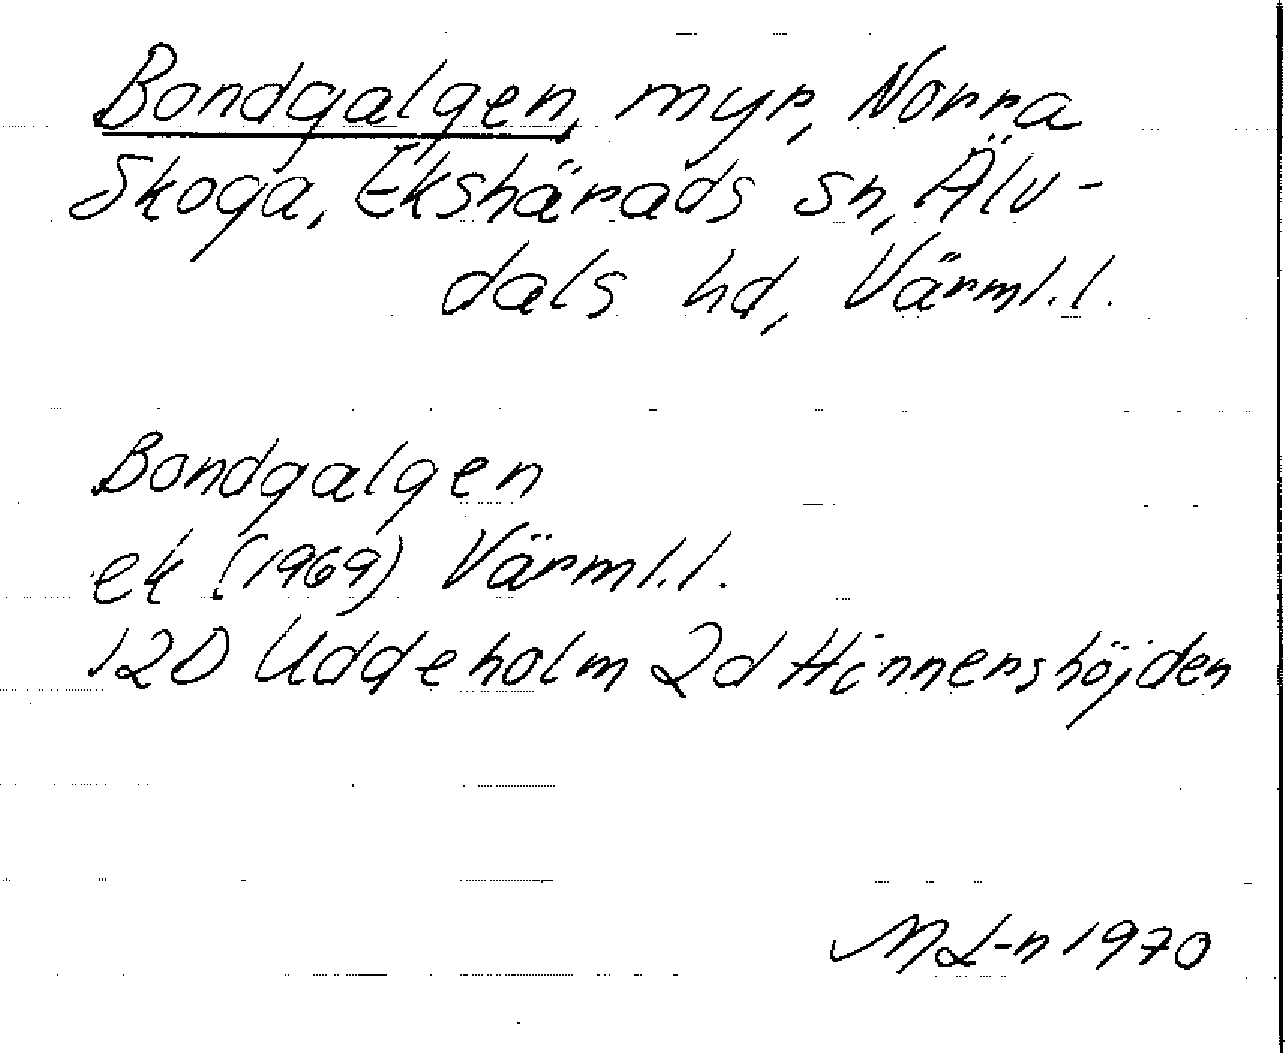 Bondgalgen, myr, Norra
Skoga, Ekshärads sn, Älv-
dals hd, Värml.l.
Bondgalgen
ek (1969) Värml.l.
12D Uddeholm 2d Hinnershöjden
ML-n 1970